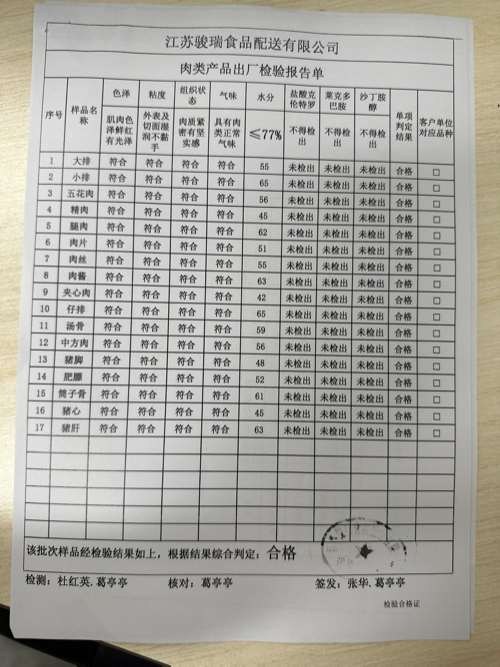 江苏骏瑞食品配送有限公司
肉类产品出厂检验报告单
序号 样品名称 色泽 粘度 组织状态 气味 水分 盐酸克伦特罗 莱克多巴胺 沙丁胺醇 单项判定结果 客户单位对应品种
肌肉色泽鲜红有光泽 外表及切面湿润不黏手 肉质紧密有坚实感 具有肉类正常气味 ≤77% 不得检出 不得检出 不得检出
1 大排 符合 符合 符合 符合 55 未检出 未检出 未检出 合格 □
2 小排 符合 符合 符合 符合 65 未检出 未检出 未检出 合格 □
3 五花肉 符合 符合 符合 符合 56 未检出 未检出 未检出 合格 □
4 精肉 符合 符合 符合 符合 45 未检出 未检出 未检出 合格 □
5 腿肉 符合 符合 符合 符合 62 未检出 未检出 未检出 合格 □
6 肉片 符合 符合 符合 符合 51 未检出 未检出 未检出 合格 □
7 肉丝 符合 符合 符合 符合 55 未检出 未检出 未检出 合格 □
8 肉酱 符合 符合 符合 符合 63 未检出 未检出 未检出 合格 □
9 夹心肉 符合 符合 符合 符合 42 未检出 未检出 未检出 合格 □
10 仔排 符合 符合 符合 符合 65 未检出 未检出 未检出 合格 □
11 汤骨 符合 符合 符合 符合 59 未检出 未检出 未检出 合格 □
12 中方肉 符合 符合 符合 符合 56 未检出 未检出 未检出 合格 □
13 猪脚 符合 符合 符合 符合 48 未检出 未检出 未检出 合格 □
14 肥膘 符合 符合 符合 符合 52 未检出 未检出 未检出 合格 □
15 筒子骨 符合 符合 符合 符合 61 未检出 未检出 未检出 合格 □
16 猪心 符合 符合 符合 符合 45 未检出 未检出 未检出 合格 □
17 猪肝 符合 符合 符合 符合 63 未检出 未检出 未检出 合格 □
该批次样品经检验结果如上，根据结果综合判定：合格
检测：杜红英.葛亭亭 核对：葛亭亭 签发：张华.葛亭亭
检验合格证